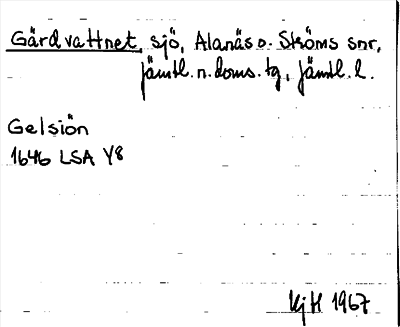 Gårdvattnet, sjö, Alanäs o. Ströms snr,
jämtl. n. doms. tg, Jämtl. l.
Gelsiön
1646 LSA Y8
KjH 1967